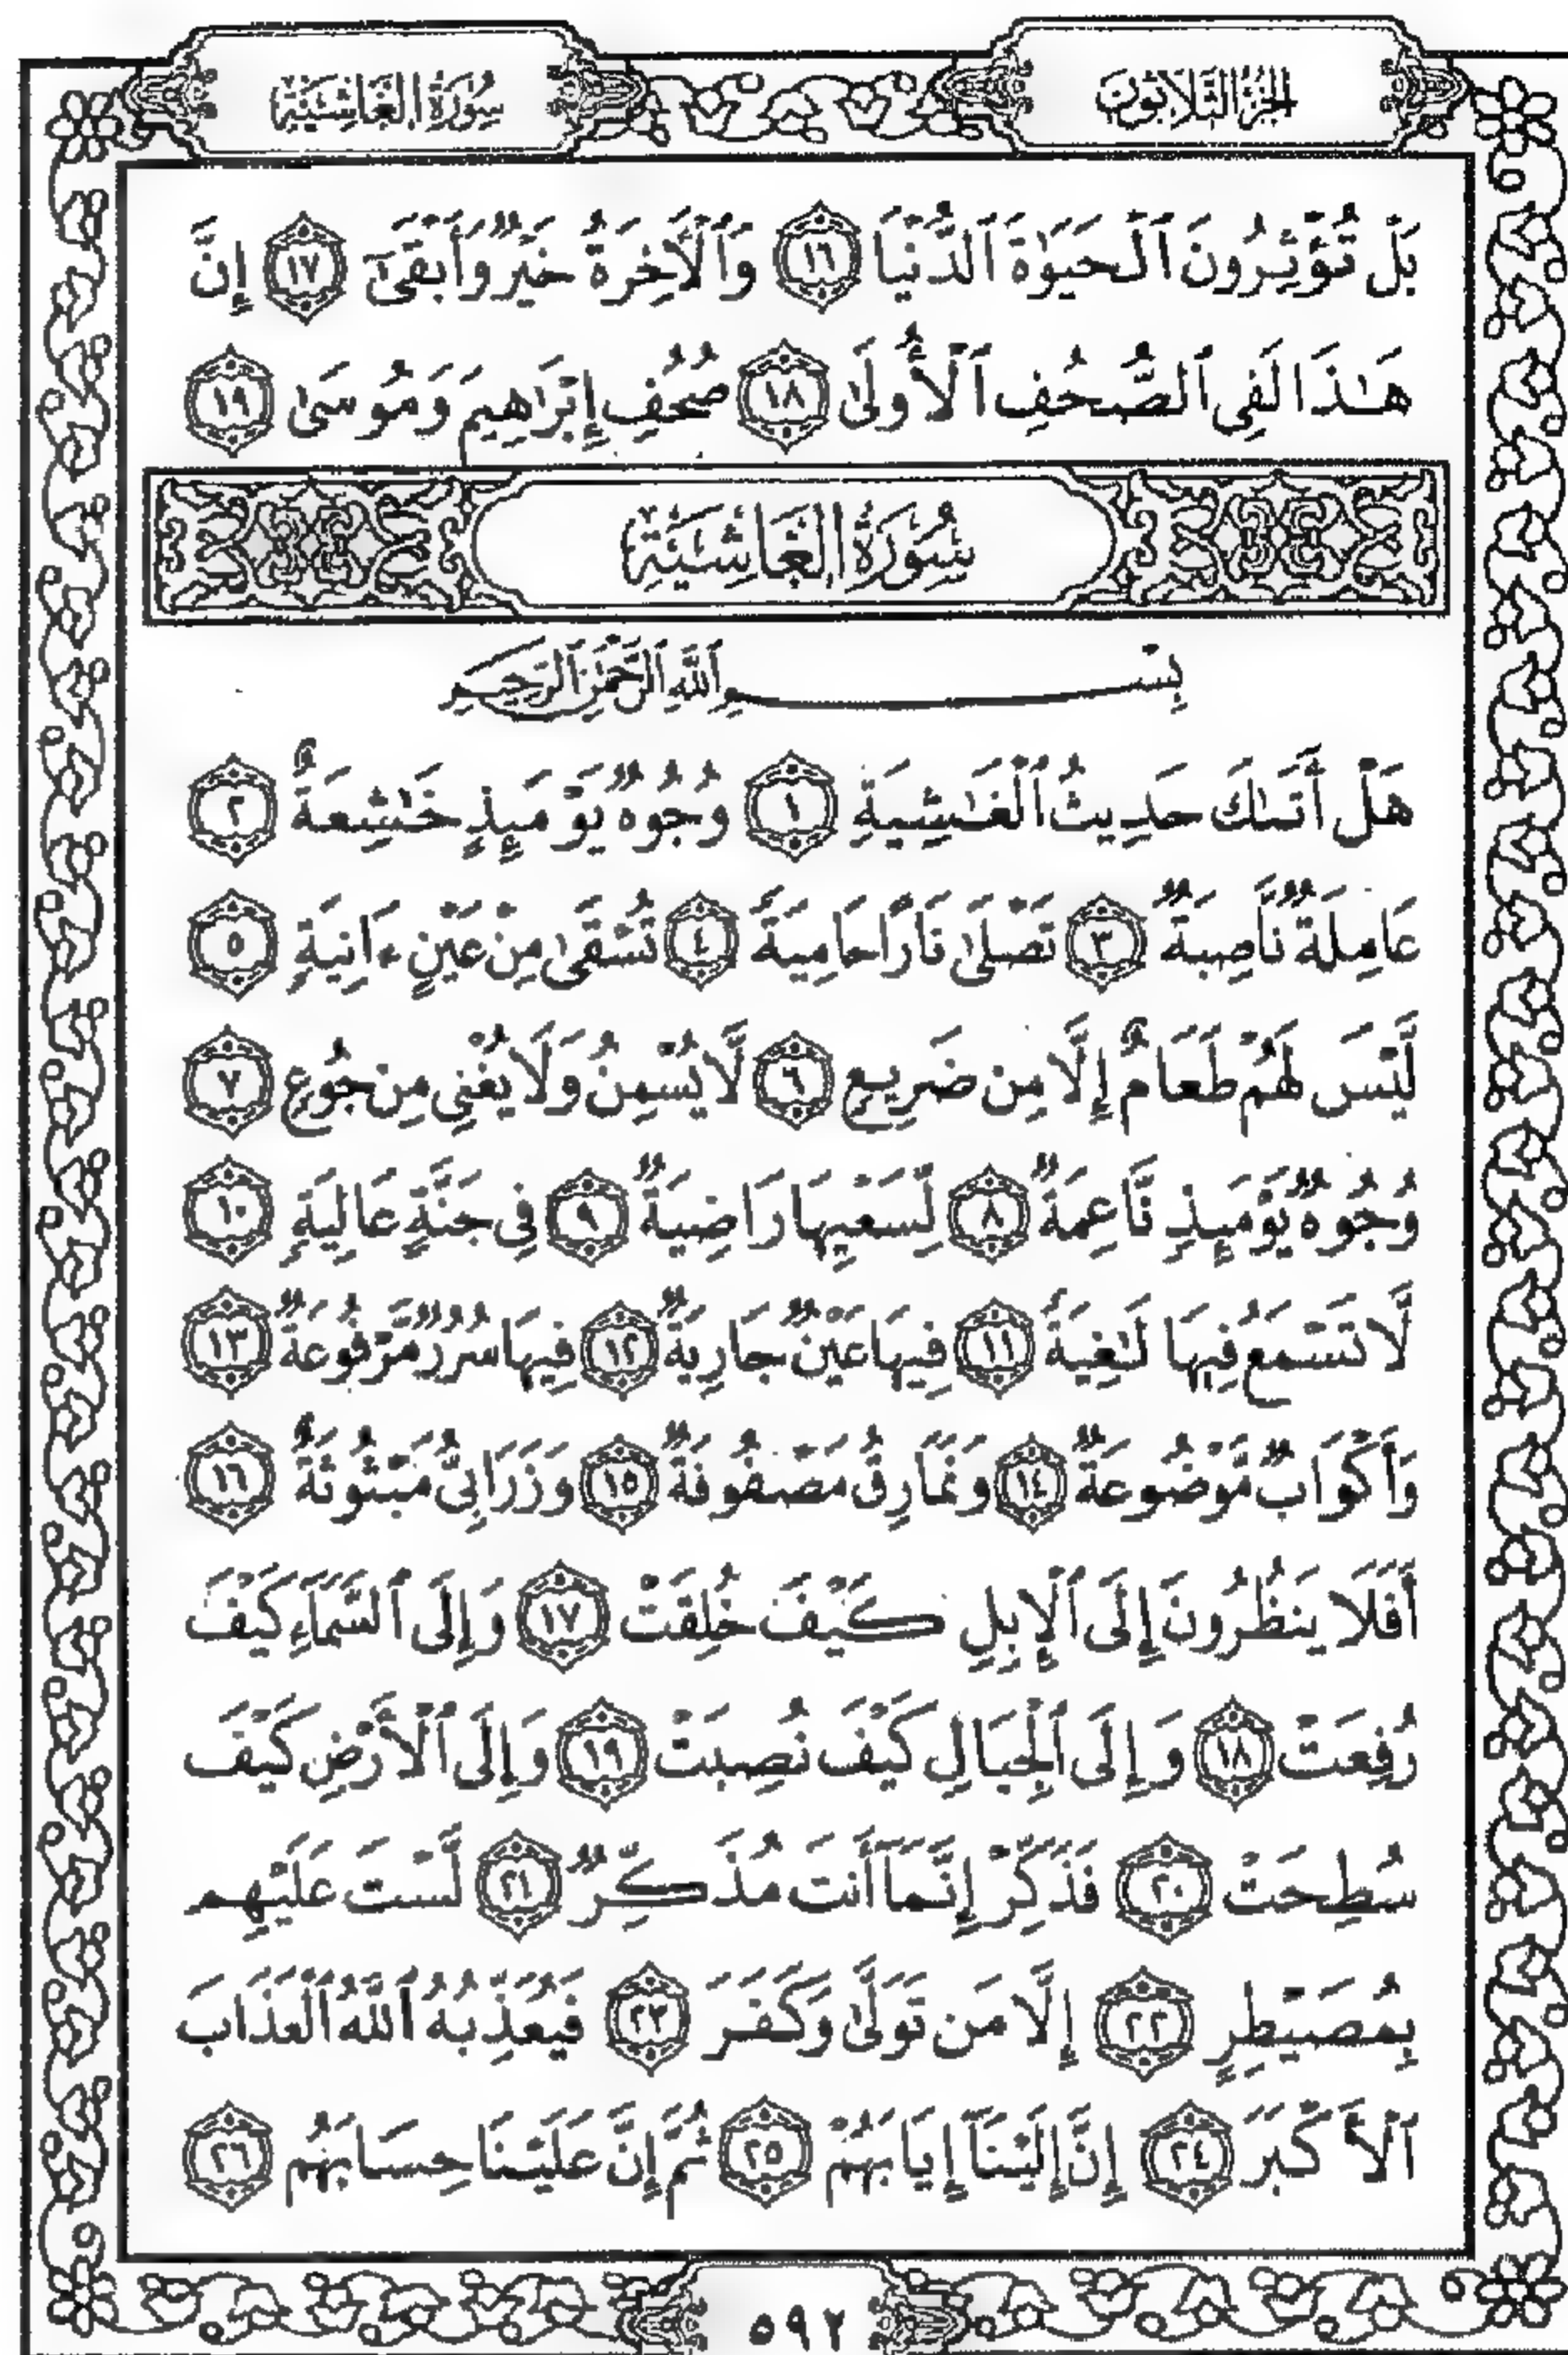 الجزء الثلاثون
سورة الغاشية
بَلْ تُؤْثِرُونَ ٱلْحَيَوٰةَ ٱلدُّنْيَا ١٦ وَٱلْأَخِرَةُ خَيْرٌ وَأَبْقَىٰٓ ١٧ إِنَّ
هَـٰذَا لَفِى ٱلصُّحُفِ ٱلْأُولَىٰ ١٨ صُحُفِ إِبْرَٰهِيمَ وَمُوسَىٰ ١٩
سُورَةُ الْغَاشِيَةِ
بِسْمِ ٱللَّهِ ٱلرَّحْمَـٰنِ ٱلرَّحِيمِ
هَلْ أَتَىٰكَ حَدِيثُ ٱلْغَـٰشِيَةِ ١ وُجُوهٌ يَوْمَئِذٍ خَـٰشِعَةٌ ٢
عَامِلَةٌ نَّاصِبَةٌ ٣ تَصْلَىٰ نَارًا حَامِيَةً ٤ تُسْقَىٰ مِنْ عَيْنٍ ءَانِيَةٍ ٥
لَّيْسَ لَهُمْ طَعَامٌ إِلَّا مِن ضَرِيعٍ ٦ لَّا يُسْمِنُ وَلَا يُغْنِى مِن جُوعٍ ٧
وُجُوهٌ يَوْمَئِذٍ نَّاعِمَةٌ ٨ لِّسَعْيِهَا رَاضِيَةٌ ٩ فِى جَنَّةٍ عَالِيَةٍ ١٠
لَّا تَسْمَعُ فِيهَا لَـٰغِيَةً ١١ فِيهَا عَيْنٌ جَارِيَةٌ ١٢ فِيهَا سُرُرٌ مَّرْفُوعَةٌ ١٣
وَأَكْوَابٌ مَّوْضُوعَةٌ ١٤ وَنَمَارِقُ مَصْفُوفَةٌ ١٥ وَزَرَابِىُّ مَبْثُوثَةٌ ١٦
أَفَلَا يَنظُرُونَ إِلَى ٱلْإِبِلِ كَيْفَ خُلِقَتْ ١٧ وَإِلَى ٱلسَّمَآءِ كَيْفَ
رُفِعَتْ ١٨ وَإِلَى ٱلْجِبَالِ كَيْفَ نُصِبَتْ ١٩ وَإِلَى ٱلْأَرْضِ كَيْفَ
سُطِحَتْ ٢٠ فَذَكِّرْ إِنَّمَآ أَنتَ مُذَكِّرٌ ٢١ لَّسْتَ عَلَيْهِم
بِمُصَيْطِرٍ ٢٢ إِلَّا مَن تَوَلَّىٰ وَكَفَرَ ٢٣ فَيُعَذِّبُهُ ٱللَّهُ ٱلْعَذَابَ
ٱلْأَكْبَرَ ٢٤ إِنَّ إِلَيْنَآ إِيَابَهُمْ ٢٥ ثُمَّ إِنَّ عَلَيْنَا حِسَابَهُم ٢٦
٥٩٢